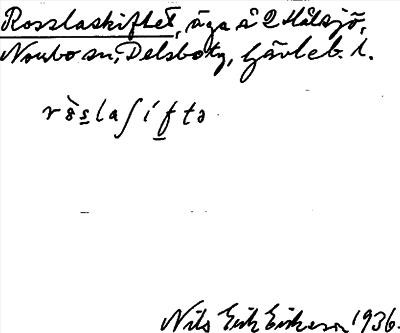 Rosslaskiftet, äga å 2 Hålsjö,
Norrbo sn, Delsbo tg, Gävleb. l.
ròslaʃifta
Nils Erik Erikson 1936.